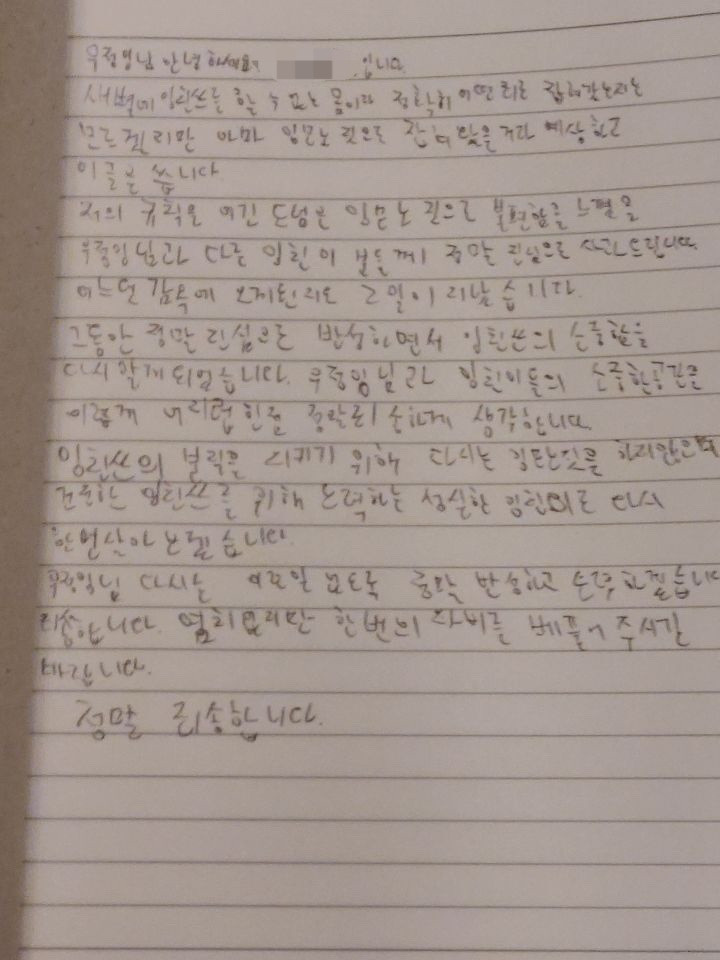 우정잉님 안녕하세요. 입니다.
새벽에 잉친쓰를 할 수 없는 몸이라 정확히 어떤 죄로 잡혀갔는지는
모르겠지만 아마 잉문노 핑으로 잡혀 갔을거라 예상하고
이글을 씁니다
저의 규칙을 어긴 도넘은 잉문노 핑으로 불편함을 느꼈을
우정잉님과 다른 잉친이 분들께 정말 진심으로 사과드립니다.
어느덧 감옥에 오게된지도 2일이 지났습니다.
그동안 정말 진심으로 반성하면서 잉친쓰의 소중함을
다시 알게 되었습니다. 우정잉님과 잉친이들의 소중한공간을
이렇게 더럽힌점 정말 죄송하게 생각합니다.
잉친쓰의 물을 지키기 위해 다시는 잉단짓을 하지않으며
건전한 잉친쓰를 위해 노력하는 성실한 잉친이로 다시
한번살아보겠습니다.
우정잉님 다시는 이런일 없도록 정말 반성하고 노력하겠습니다
죄송합니다. 염치없지만 한번의 자비를 베풀어 주시길
바랍니다.
정말 죄송합니다.